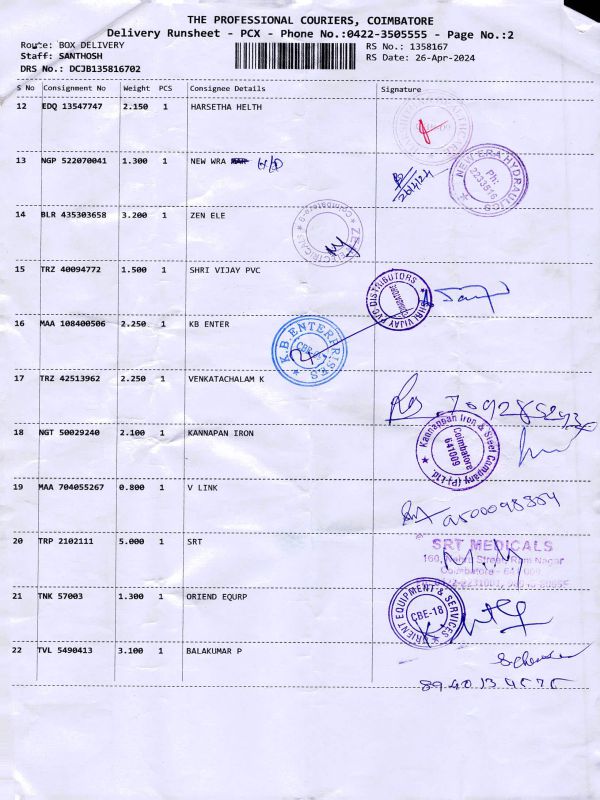 THE PROFESSIONAL COURIERS, COIMBATORE
Delivery Runsheet - PCX - Phone No.:0422-3505555 - Page No.:2
Route: BOX DELIVERY RS No.: 1358167
Staff: SANTHOSH RS Date: 26-Apr-2024
DRS No.: DCJB135816702
S No Consignment No Weight PCS Consignee Details Signature
12 EDQ 13547747 2.150 1 HARSETHA HELTH
13 NGP 522070041 1.300 1 NEW WRA
NEW ERA HYDRAULICS
PH: 2233516
14 BLR 435303658 3.200 1 ZEN ELE
Coimbatore-9
15 TRZ 40094772 1.500 1 SHRI VIJAY PVC
SHRI VIJAY PVC DISTRIBUTORS
COIMBATORE
16 MAA 108400506 2.250 1 KB ENTER
K.B.ENTERPRISES
17 TRZ 42513962 2.250 1 VENKATACHALAM K
18 NGT 50029240 2.100 1 KANNAPAN IRON
Kannappan Iron & Steel Company (P) Ltd.
Coimbatore
641009
19 MAA 704055267 0.800 1 V LINK
20 TRP 2102111 5.000 1 SRT
SRT MEDICALS
Ram Nagar
Coimbatore - 641 009
21 TNK 57003 1.300 1 ORIEND EQURP
ORIENT EQUIPMENT & SERVICES
CBE-18
22 TVL 5490413 3.100 1 BALAKUMAR P